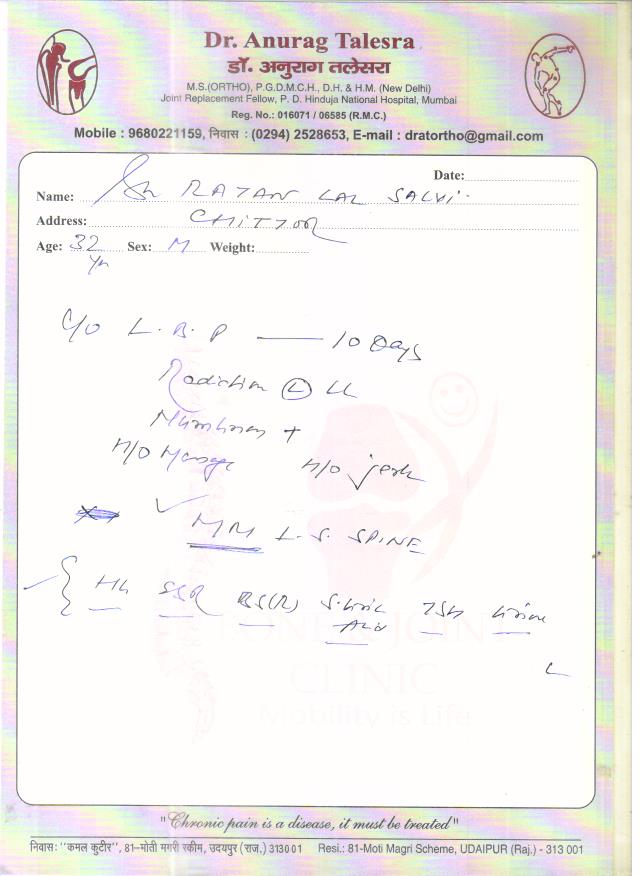 Dr. Anurag Talesra
डॉ. अनुराग तलेसरा
M.S.(ORTHO), P.G.D.M.C.H., D.H. & H.M. (New Delhi)
Joint Replacement Fellow, P. D. Hinduja National Hospital, Mumbai
Reg. No.: 016071 / 06585 (R.M.C.)
Mobile : 9680221159, निवास : (0294) 2528653, E-mail : dratortho@gmail.com
Date:
Name: Sh RATAN LAL SALVI
Address: CHITTOR
Age: 32 yr Sex: M Weight:
C/O L.B.P 10 Days
Radiation (L) LL
Numbness +
H/O Massage H/O jerk
MRI L.S. SPINE
Hb ESR BS(R) S. Uric Acid TSH Urine
BONE & JOINT
CLINIC
Mobility is Life
"Chronic pain is a disease, it must be treated"
निवास: "कमल कुटीर", 81–मोती मगरी स्कीम, उदयपुर (राज.) 313001 Resi.: 81-Moti Magri Scheme, UDAIPUR (Raj.) - 313 001